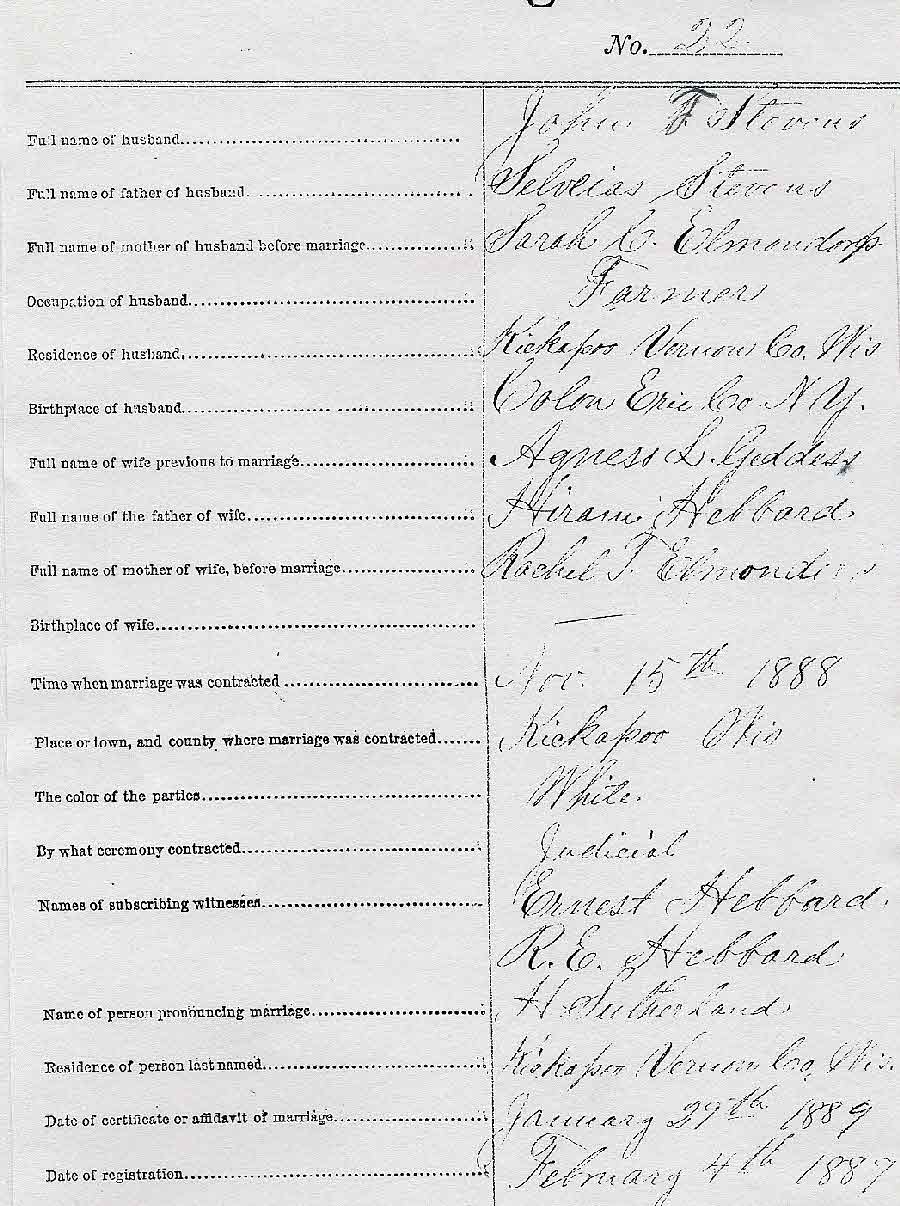 No. 22
Full name of husband John F Stevens
Full name of father of husband Selveias Stevens
Full name of mother of husband before marriage Sarah C. Elmondorp
Occupation of husband Farmer
Residence of husband Kickapoo Vernon Co. Wis
Birthplace of husband Colon Erie Co N Y.
Full name of wife previous to marriage Agness L. Geddess
Full name of the father of wife Hiram Hebbard
Full name of mother of wife, before marriage Rachel T.
Birthplace of wife —
Time when marriage was contracted Nov. 15th 1888
Place or town, and county where marriage was contracted Kickapoo Wis
The color of the parties White.
By what ceremony contracted Judicial
Names of subscribing witnesses Ernest Hebbard.
R. E. Hebbard
Name of person pronouncing marriage H Sutherland
Residence of person last named Kickapoo Vernon Co, Wis.
Date of certificate or affidavit of marriage January 29th 1889
Date of registration February 4th 1889